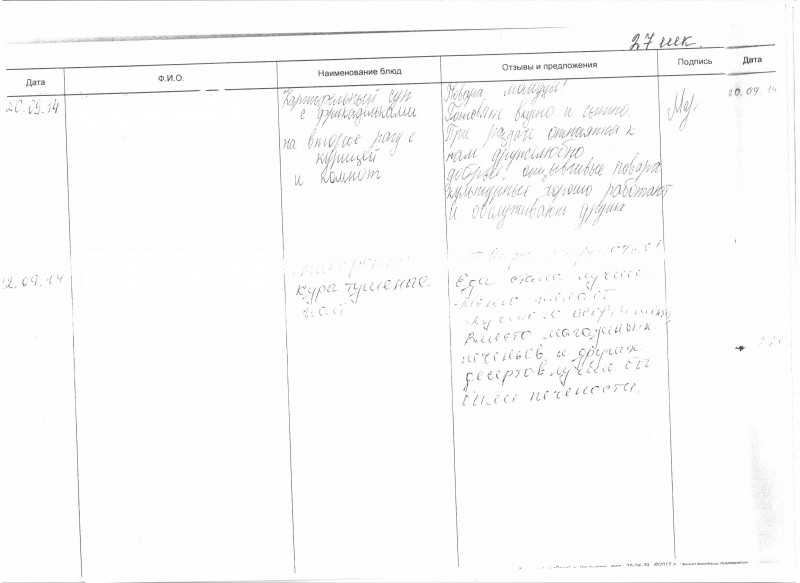 27 шк.
Дата Ф.И.О. Наименование блюд Отзывы и предложения Подпись Дата
20.09.14
Картофельный суп
с фрикадельками
на второе рагу с
курицей
и компот
Повара молодцы!
Готовят вкусно и сытно.
При раздаче
к
нам дружелюбно
добрые, отзывчивые повара
культурные хорошо работают
и обслуживают других
20.09.14
.09.14
кура тушеные.
чай
Еда стала лучше
меню
Вместо магазинных
печеньев и других
десертов лучше бы
были печености.